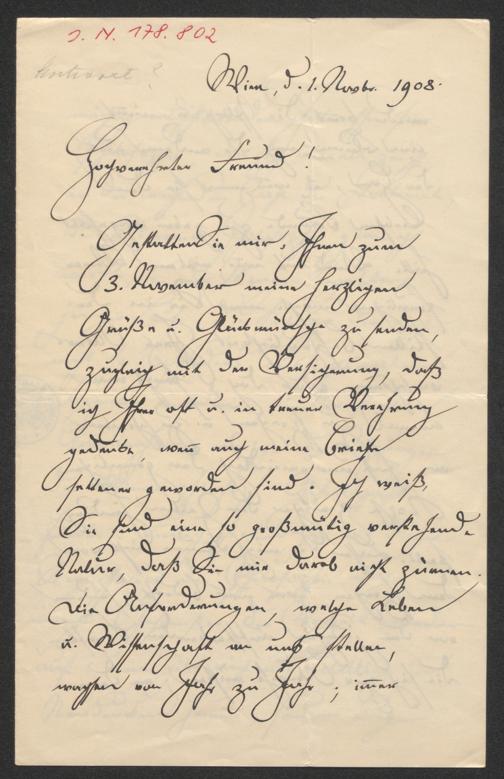 J. N. 178.802
Wien, d. 1. Novbr. 1908.
Hochverehrter Freund!
Gestatten Sie mir, Ihnen zum
3. November meine herzlichen
Grüße u. Glückwünsche zu senden,
zugleich mit der Versicherung, daß
ich Ihrer oft u. in treuer Verehrung
gedenke, weñ auch meine Briefe
seltener geworden sind. Ich weiß,
Sie sind eine so großmütig verstehende
Natur, daß Sie mir darob nicht zürnen.
Die Anforderungen, welche Leben
u. Wissenschaft an uns stellen,
wachsen von Jahr zu Jahr; im̄er